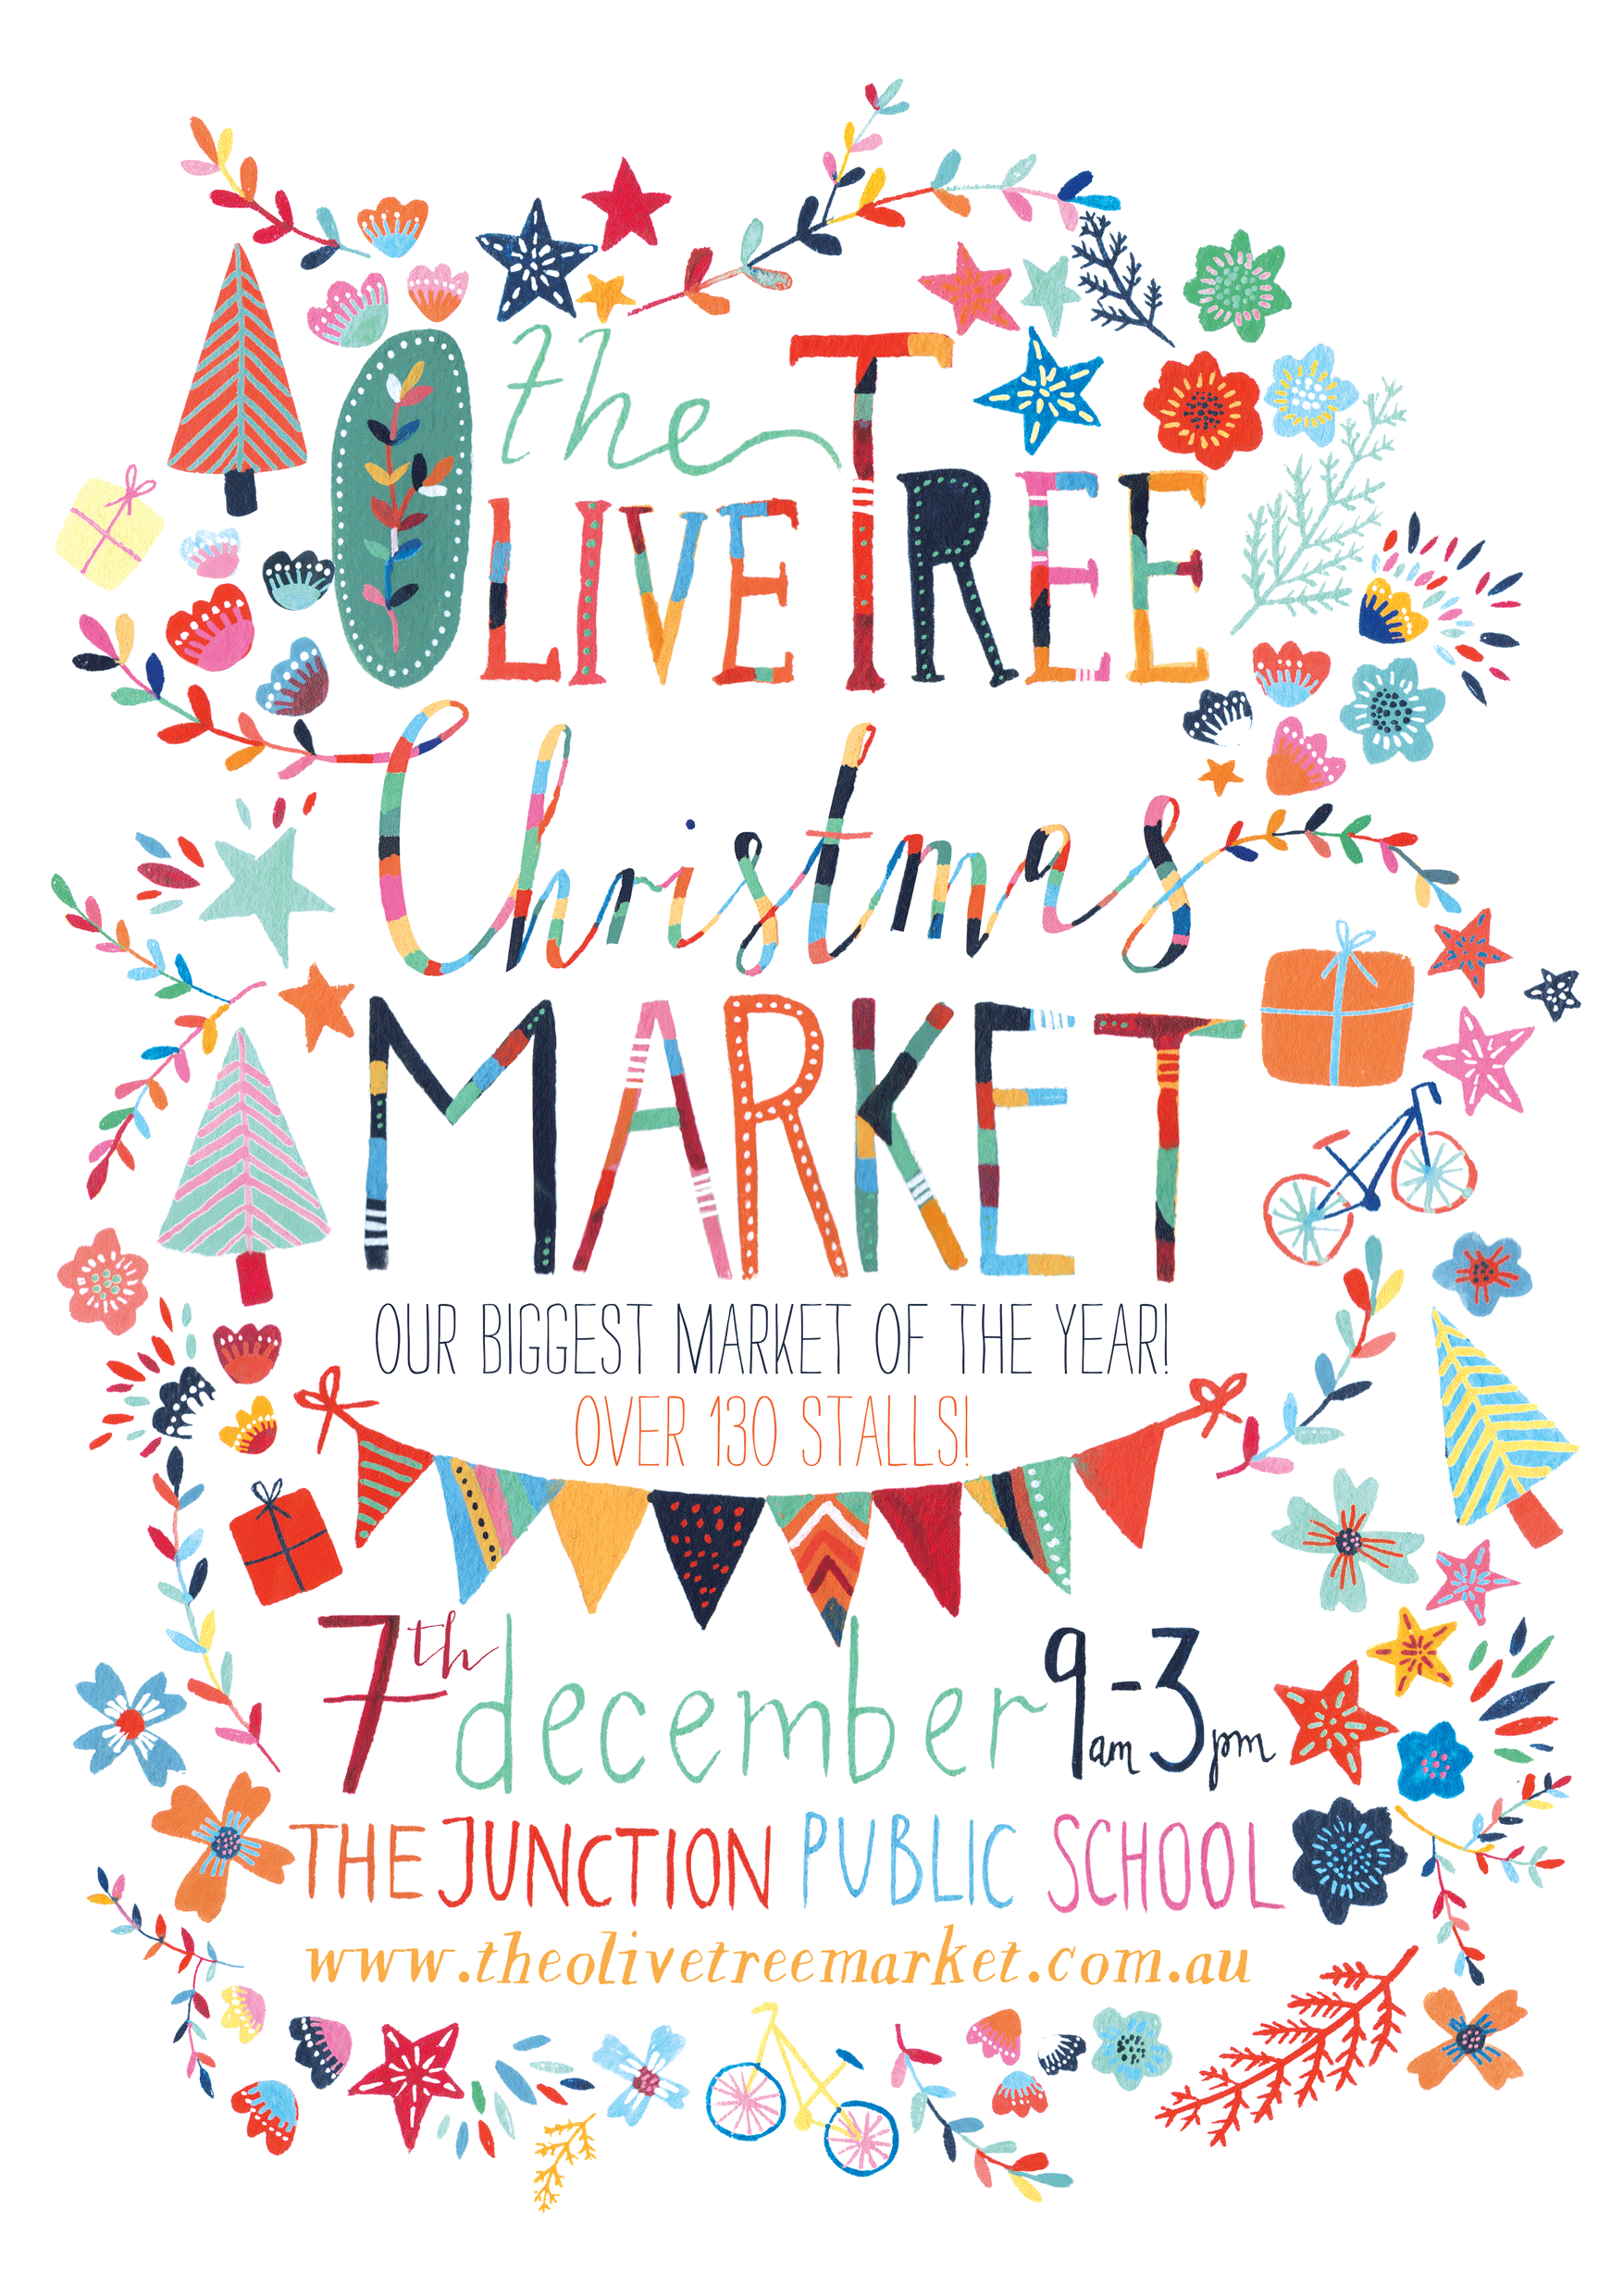 the
OLIVE TREE
Christmas
MARKET
OUR BIGGEST MARKET OF THE YEAR!
OVER 130 STALLS!
7th december 9am-3pm
THE JUNCTION PUBLIC SCHOOL
www.theolivetreemarket.com.au